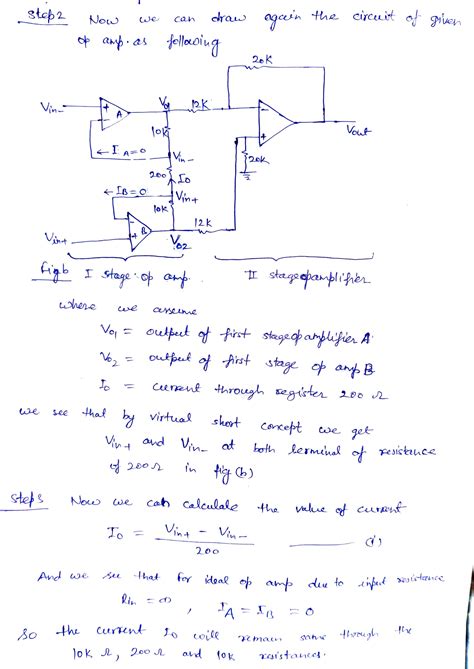 Step2 Now we can draw again the circuit of given
op amp. as following
20K
Vin-
+
A
-
Vo1
12K
-
+
Vout
10K
← I A=0
Vin-
200
I0
20K
← IB=0
Vin+
10K
-
B
+
12K
Vin+
Vo2
Fig b I stage op amp.
II stage opamplifier
where we assume
Vo1 = output of first stage opamplifier A
Vo2 = output of first stage op amp B
I0 = current through register 200 Ω
we see that by virtual short concept we get
Vin+ and Vin- at both terminal of resistance
of 200Ω in fig (b)
Step3 Now we can calculate the value of current
I0 = Vin+ - Vin- / 200 —— (i)
And we see that for ideal op amp due to input resistance
Rin = ∞ , IA = IB = 0
so the current I0 will remain same through the
10K Ω, 200 Ω and 10K resistances.